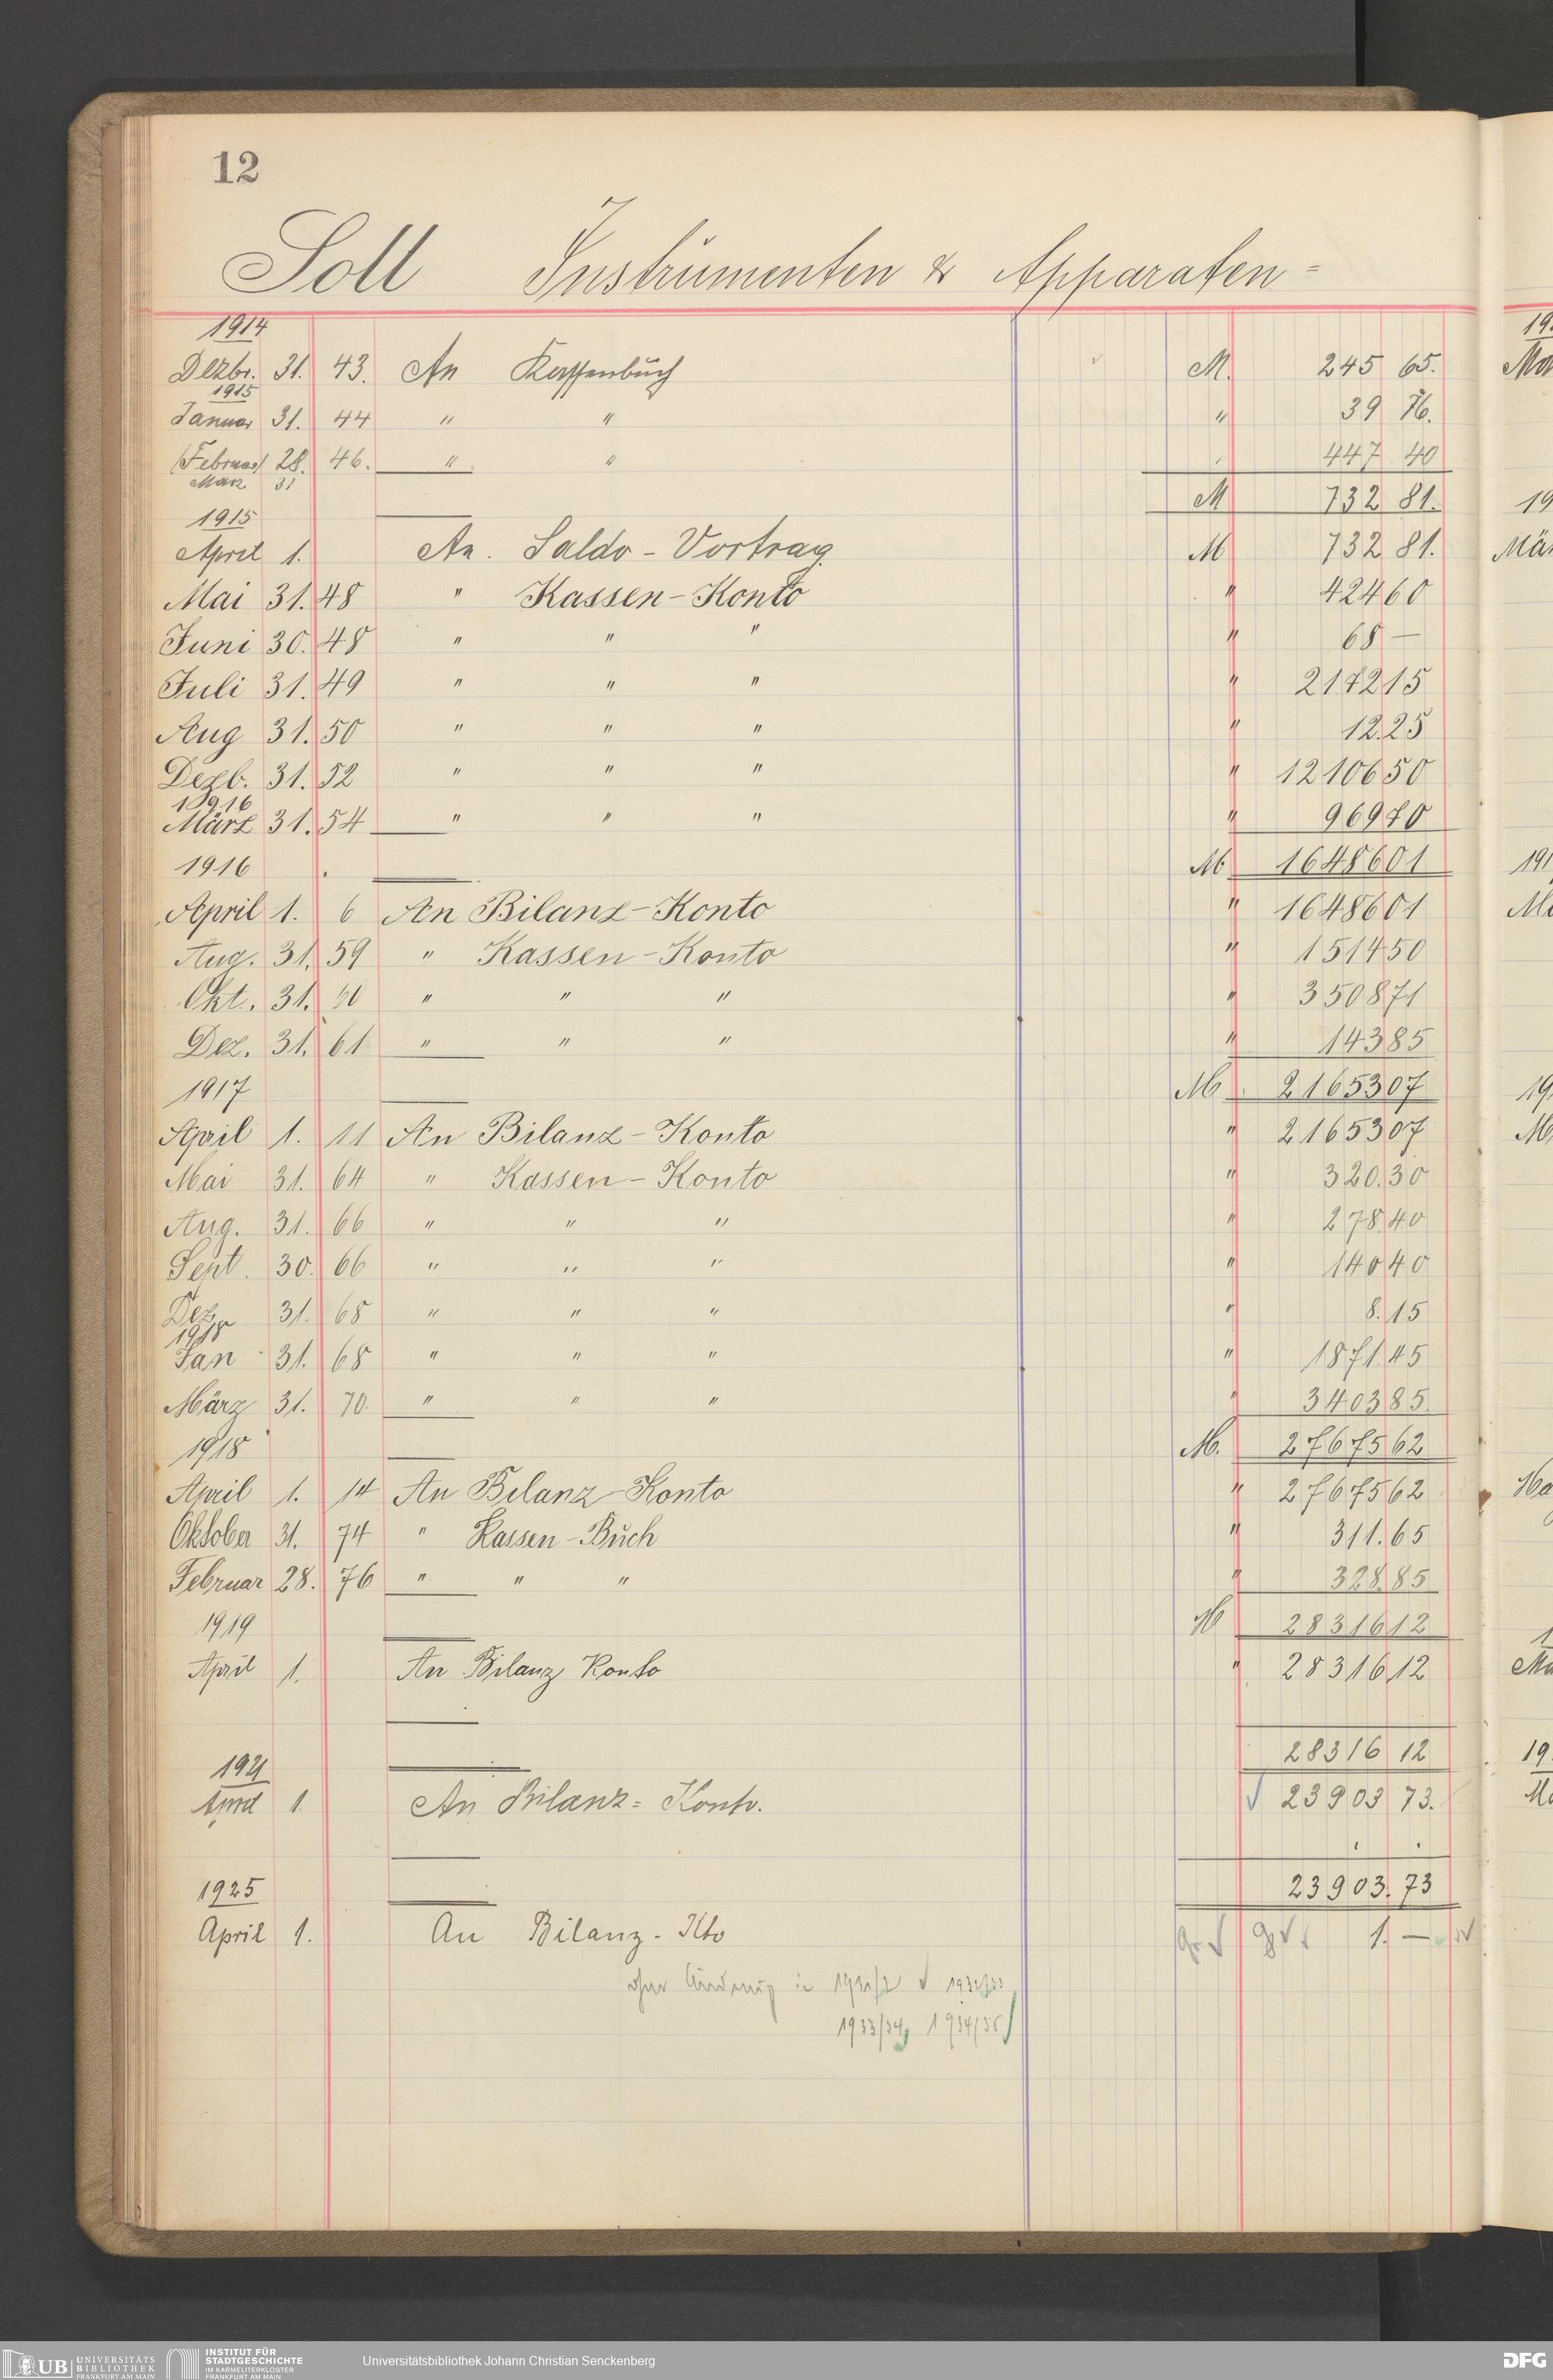 12
Soll Instrumenten & Apparaten=
1914
Dezbr. 31. 43. An Kassenbuch M. 245 65.
1915
Januar 31. 44 " " " 39 76.
(Februar) 28. 46. " " 447 40
März 31
M 732 81.
1915
April 1. An. Saldo-Vortrag M 732 81.
Mai 31. 48 " Kassen-Konto " 424 60
Juni 30. 48 " " " " 68 —
Juli 31. 49 " " " " 2172 15
Aug 31. 50 " " " " 12.25
Dezb. 31. 52 " " " " 12106 50
1916
März 31. 54 " " " " 969 70
M 16486 01
1916
April 1. 6 An Bilanz-Konto " 16486 01
Aug. 31. 59 " Kassen-Konto " 1514 50
Okt. 31. 60 " " " " 3508 71
Dez. 31. 61 " " " " 143 85
M 21653 07
1917
April 1. 11 An Bilanz-Konto " 21653 07
Mai 31. 64 " Kassen-Konto " 320.30
Aug. 31. 66 " " " " 278.40
Sept. 30. 66 " " " " 140 40
Dez. 31. 68 " " " " 8.15
1918
Jan 31. 68 " " " " 1871.45
März 31. 70. " " " " 3403 85.
M. 27675 62
1918
April 1. 14 An Bilanz-Konto " 27675 62
Oktober 31. 74 " Kassen-Buch " 311.65
Februar 28. 76 " " " " 328.85
M 28316 12
1919
April 1. An Bilanz Konto " 28316 12
28316 12
1921
April 1 An Bilanz= Konto. 23903 73.
23903.73
1925
April 1. An Bilanz-Kto 1. —
ohne Änderung in 1931/2 1932/33
1933/34, 1934/35
19
Mä
UB UNIVERSITÄTS
BIBLIOTHEK
FRANKFURT AM MAIN
INSTITUT FÜR
STADTGESCHICHTE
IM KARMELITERKLOSTER
FRANKFURT AM MAIN
Universitätsbibliothek Johann Christian Senckenberg
DFG